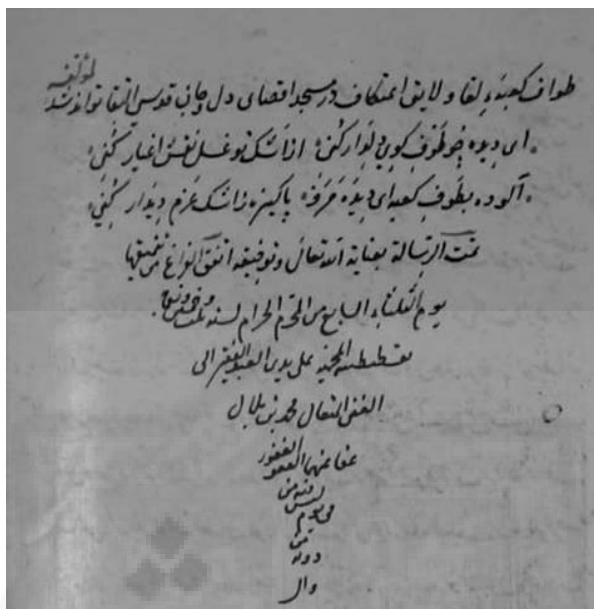 طواف کعبهٔ لقا و لایق اعتکاف در مسجد اقصای دل و جانب قدوس التقا تواند شد لمؤلفه
ای دیده چو طوف کوی دلدار کنی از اشک تو غسل نقش اغیار کنی
آلوده بطوف کعبه ای دیده مرو پاکیزه ز اشک عزم دیدار کنی
تمت الرسالة بعناية الله تعالی و توفیقه اتفق الفراغ من تنمیقها
یوم الثلثاء السابع من المحرم الحرام لسنه
بقسطنطنیة المحمیة علی یدی العبد الفقیر الی
الغنی المتعال محمد بن بلال
عفا عنهما العفو الغفور
لیس
یوم
من
دونه
وال